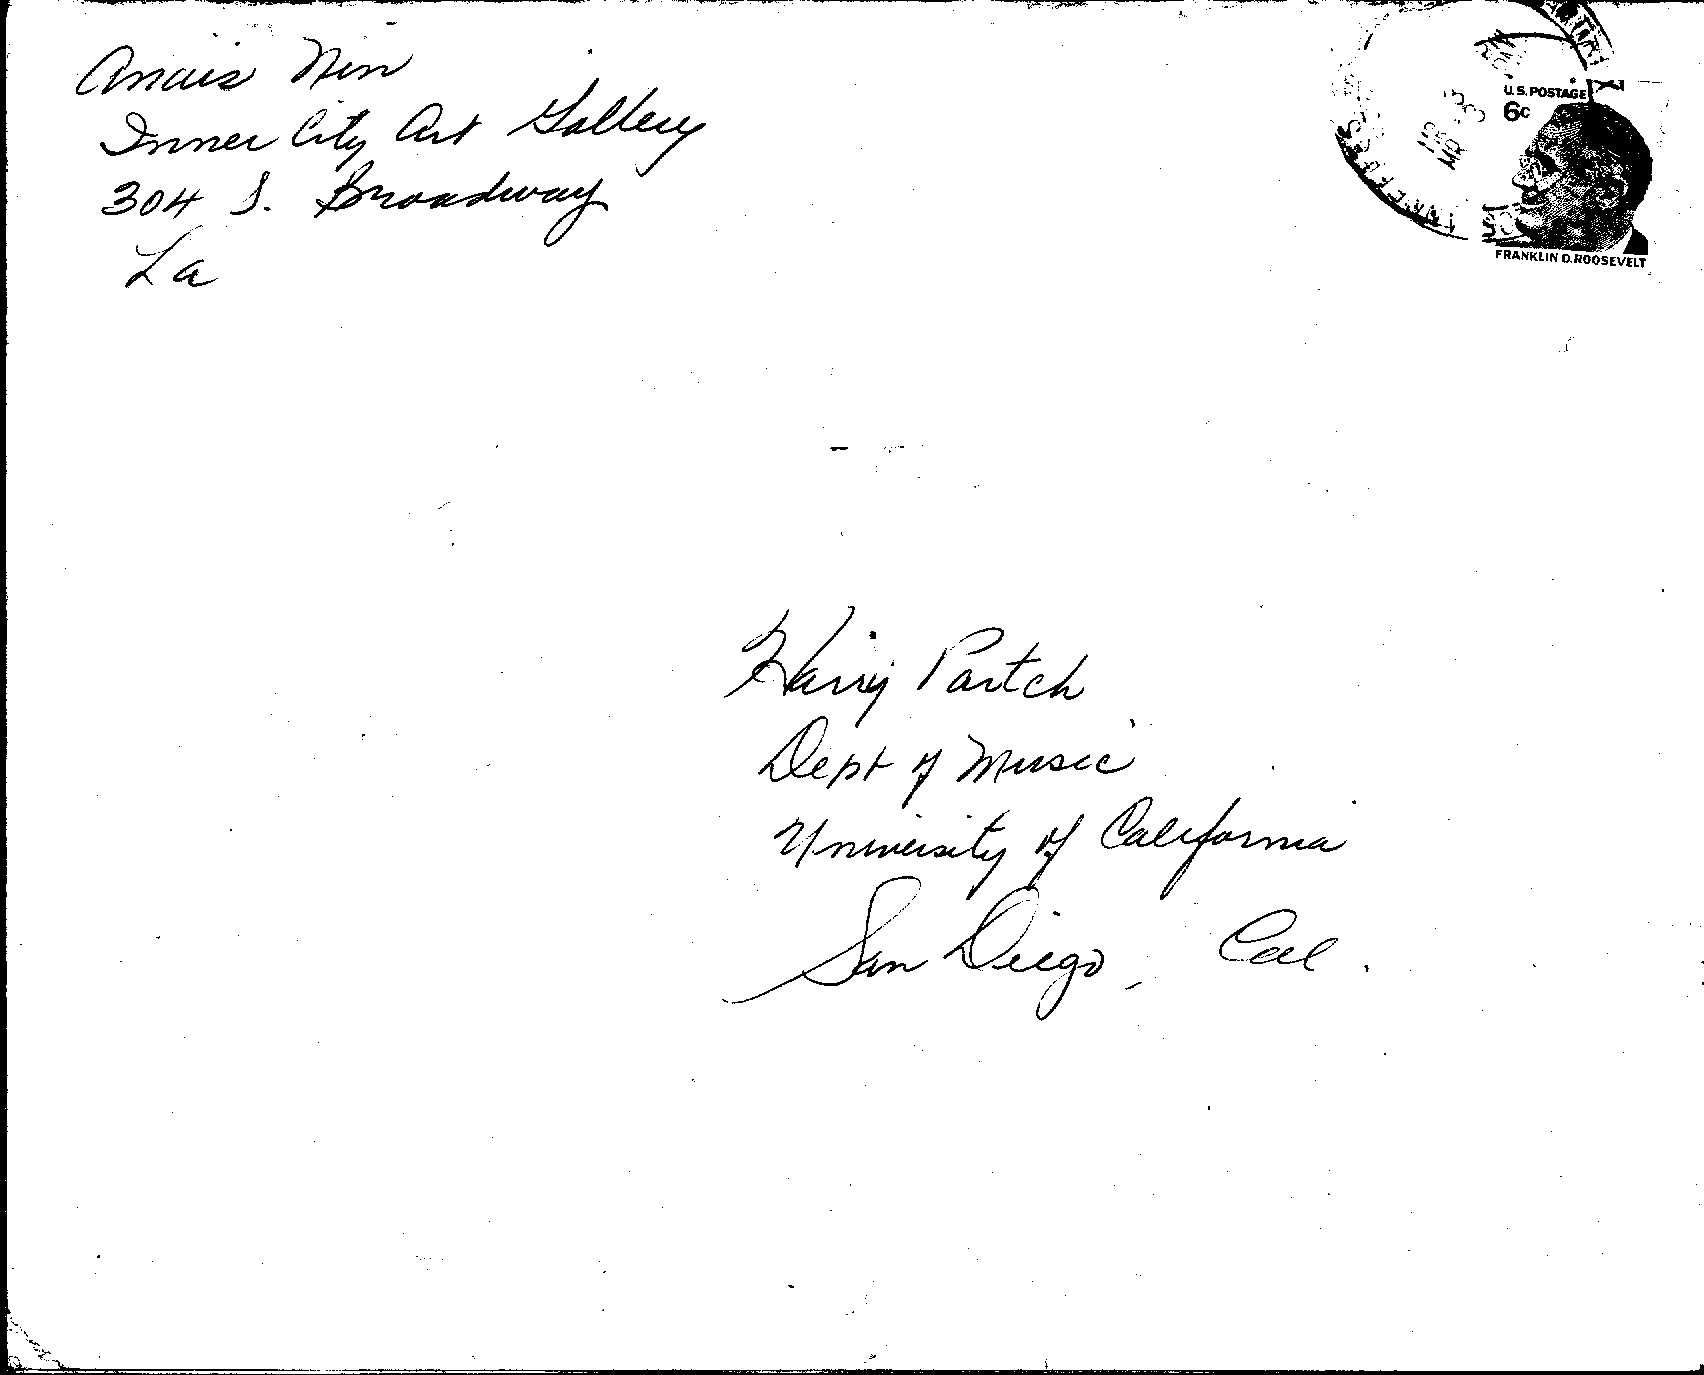 Anais Nin
Inner City Art Gallery
304 S. Broadway
La
U.S. POSTAGE
6c
FRANKLIN D. ROOSEVELT
Harry Partch
Dept of Music
University of California
San Diego, Cal.